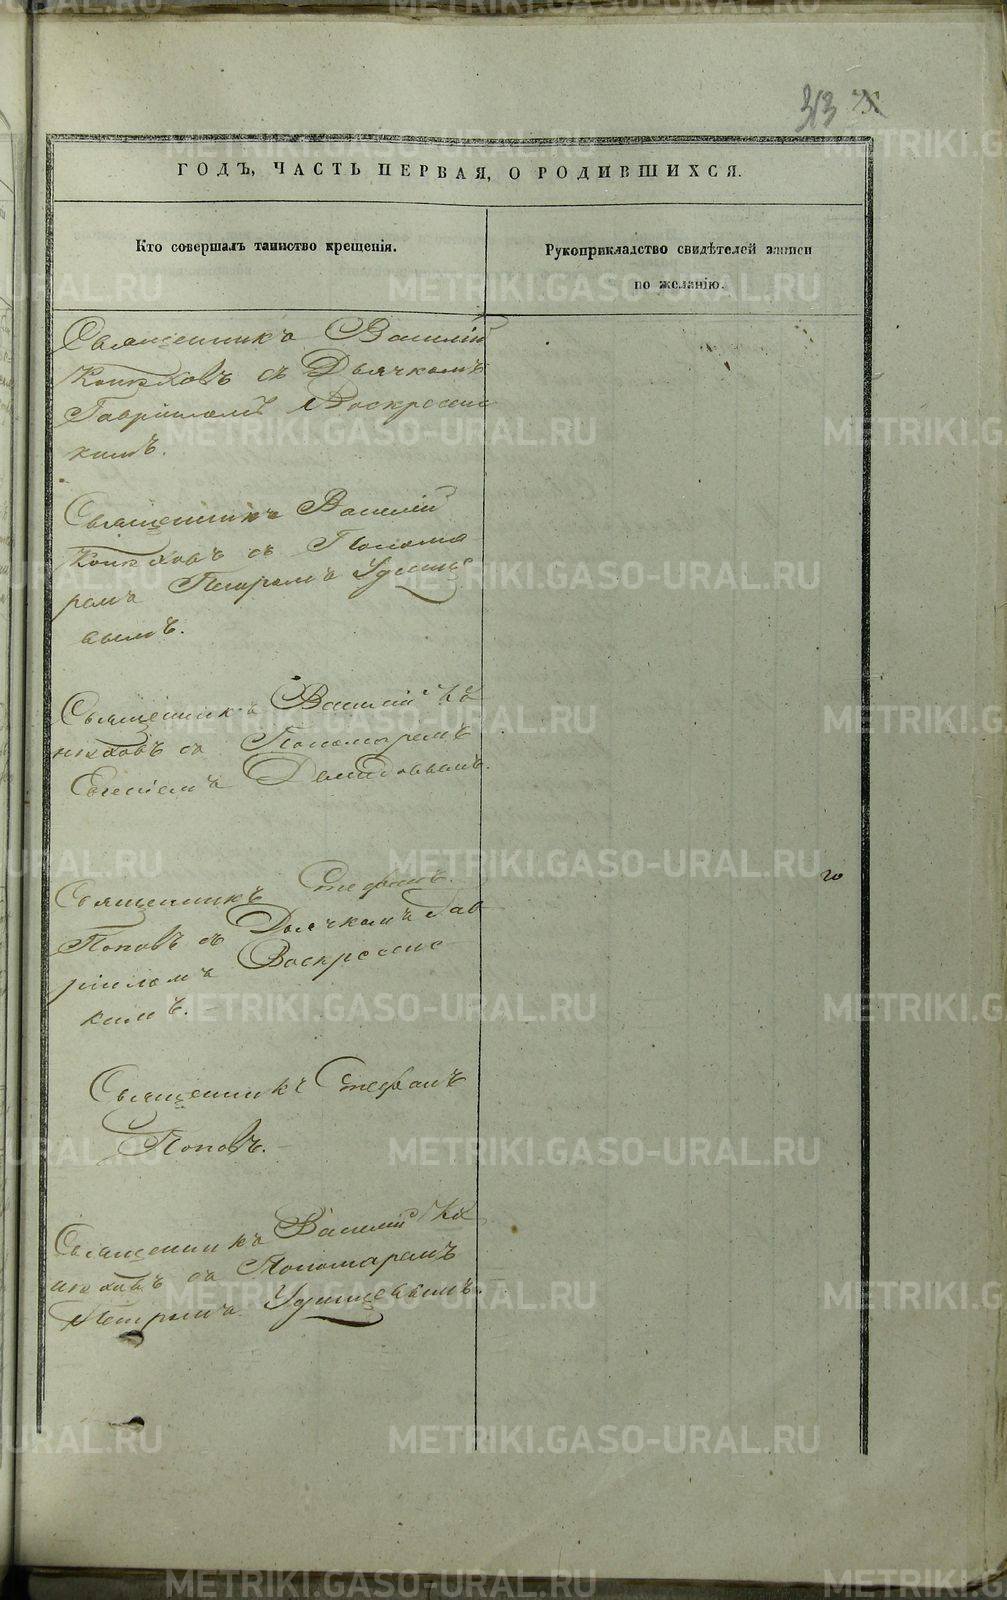 313
ГОДЪ, ЧАСТЬ ПЕРВАЯ, О РОДИВШИХСЯ.
Кто совершалъ таинство крещенія.
Рукоприкладство свидѣтелей записи
по желанію.
Священникъ Василій
Конюховъ съ Дьячкомъ
Гавріиломъ Воскресенс
кимъ.
Священникъ Василій
Конюховъ съ Понома
ремъ Петромъ Удинце
вымъ.
Священникъ Василій Ко
нюховъ съ Пономаремъ
Евгеніемъ Демидовымъ.
Священникъ Стефанъ
Поповъ съ Дьячкомъ Гав
ріиломъ Воскресенс
кимъ.
Священникъ Стефанъ
Поповъ.
Священникъ Василій Ко
нюховъ съ Пономаремъ
Петромъ Удинцевымъ.
METRIKI.GASO-URAL.RU